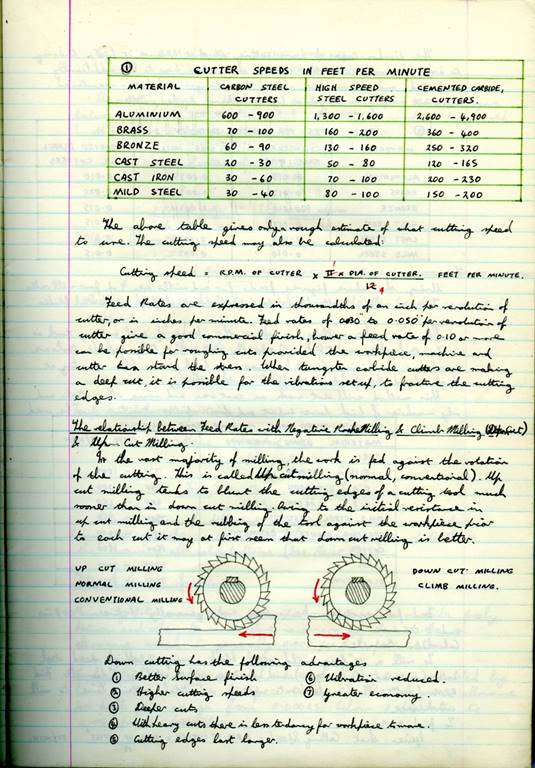 ① CUTTER SPEEDS IN FEET PER MINUTE
MATERIAL CARBON STEEL CUTTERS HIGH SPEED STEEL CUTTERS CEMENTED CARBIDE, CUTTERS.
ALUMINIUM 600 - 900 1,300 - 1,600 2,600 - 4,900
BRASS 70 - 100 160 - 200 360 - 400
BRONZE 60 - 90 130 - 160 250 - 320
CAST STEEL 20 - 30 50 - 80 120 - 165
CAST IRON 30 - 60 70 - 100 200 - 230
MILD STEEL 30 - 40 80 - 100 150 - 200
The above table gives only a rough estimate of what cutting speed
to use. The cutting speed may also be calculated:
Cutting speed = R.P.M. OF CUTTER × π × DIA. OF CUTTER. FEET PER MINUTE.
12
Feed Rates are expressed in thousandths of an inch per revolution of
cutter, or in inches per minute. Feed rates of 0.030" to 0.050" per revolution of
cutter give a good commercial finish, however a feed rate of 0.10 or more
can be possible for roughing cuts provided the workpiece, machine and
cutter can stand the stress. When tungsten carbide cutters are making
a deep cut, it is possible for the vibrations set up, to fracture the cutting
edges.
The relationship between Feed Rates with Negative Rake Milling & Climb Milling (Down Cut)
& Up Cut Milling.
In the vast majority of milling, the work is fed against the rotation
of the cutting. This is called Up cut milling (normal, conventional). Up
cut milling tends to blunt the cutting edges of a cutting tool much
sooner than in down cut milling. Owing to the initial resistance in
up cut milling and the rubbing of the tool against the workpiece prior
to each cut it may at first seem that down cut milling is better.
UP CUT MILLING
NORMAL MILLING
CONVENTIONAL MILLING
DOWN CUT MILLING
CLIMB MILLING.
Down cutting has the following advantages
① Better surface finish
② Higher cutting speeds
③ Deeper cuts
④ With heavy cuts there is less tendancy for workpiece to move.
⑤ Cutting edges last longer.
⑥ Vibration reduced.
⑦ Greater economy.